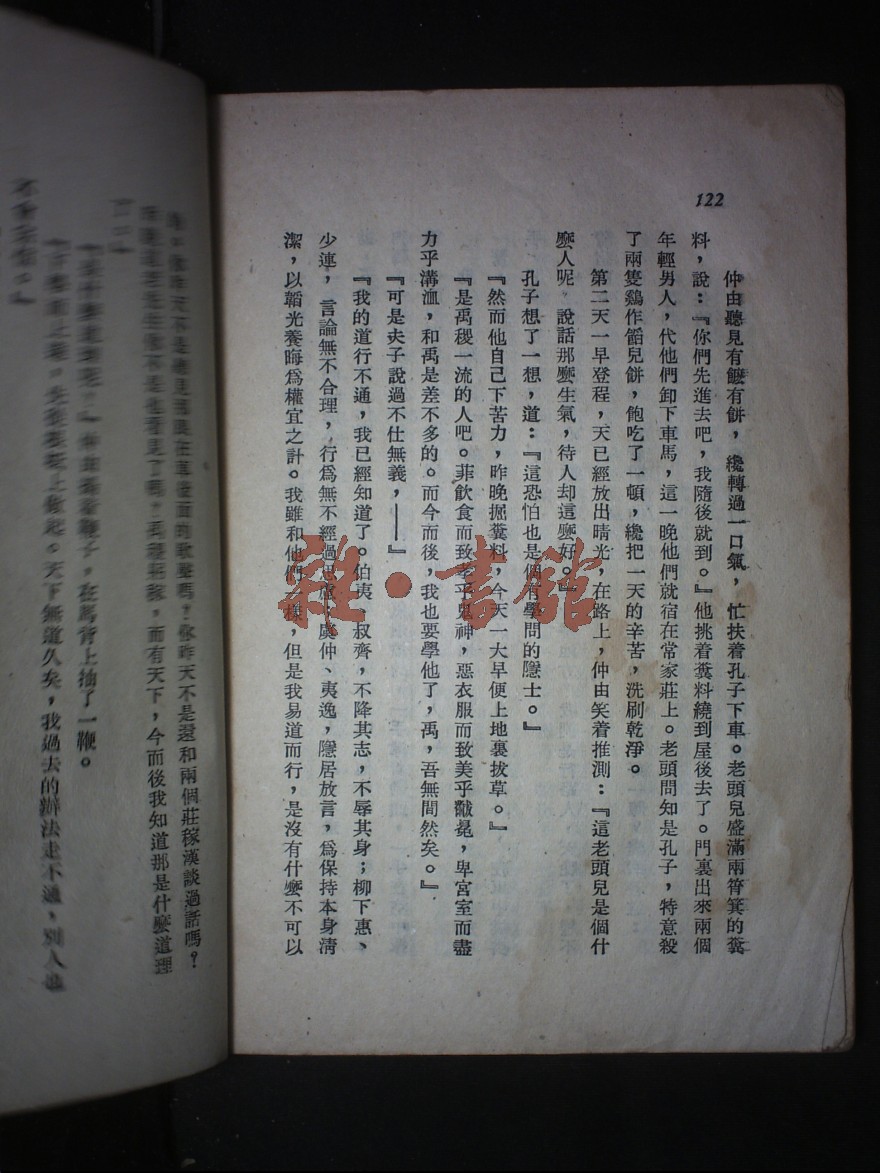 122
仲由聽見有饝有餅，纔轉過一口氣，忙扶着孔子下車。老頭兒盛滿兩筲箕的糞
料，說：『你們先進去吧，我隨後就到。』他挑着糞料繞到屋後去了。門裏出來兩個
年輕男人，代他們卸下車馬，這一晚他們就宿在常家莊上。老頭問知是孔子，特意殺
了兩隻鷄作饀兒餅，飽吃了一頓，纔把一天的辛苦，洗刷乾淨。
第二天一早登程，天已經放出晴光，在路上，仲由笑着推測：『這老頭兒是個什
麼人呢，說話那麼生氣，待人却這麼好。』
孔子想了一想，道：『這恐怕也是個有學問的隱士。』
『然而他自己下苦力，昨晚掘糞料，今天一大早便上地裏拔草。』
『是禹稷一流的人吧。菲飲食而致孝乎鬼神，惡衣服而致美乎黻冕，卑宮室而盡
力乎溝洫，和禹是差不多的。而今而後，我也要學他了，禹，吾無間然矣。』
『可是夫子說過不仕無義，——』
『我的道行不通，我已經知道了。伯夷、叔齊，不降其志，不辱其身；柳下惠、
少連，言論無不合理，行爲無不經過思慮；虞仲、夷逸，隱居放言，爲保持本身淸
潔，以韜光養晦爲權宜之計。我雖和他們一樣，但是我易道而行，是沒有什麼不可以
雜·書館
你昨天不是還和兩個莊稼漢談過話嗎？
而有天下，今而後我知道那是什麼道理
仲由揚着鞭子，在馬背上抽了一鞭。
天下無道久矣，我過去的辦法走不通，別人也